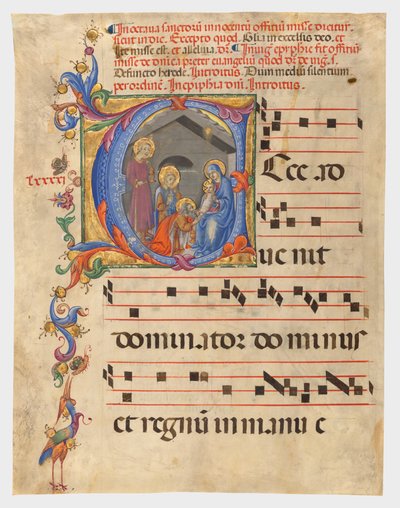 In octava sanctorū innocentū offitiū misse dicitur
sicut in die. Excepto quod. Glīa in excelsis deo. et
Ite misse est. et alleluia. dr̄. In vig̃ epyphīe fit offitiū
misse de dn̄ica preter euangeliū quod dr̄ de uig̃. s.
Defuncto herode. Introitus. Dum mediū silentium
per ordinē. In epiphīa dn̄i. Introitus.
lxxxxi
Ecce ad
ue nit
dominator do minus
et regnū in manu e